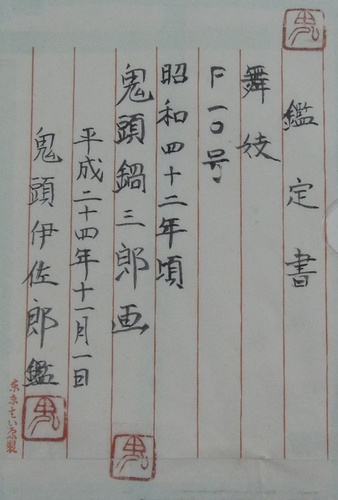 鑑定書
舞妓
F一〇号
昭和四十二年頃
鬼頭鍋三郎画
平成二十四年十一月一日
鬼頭伊佐郎鑑